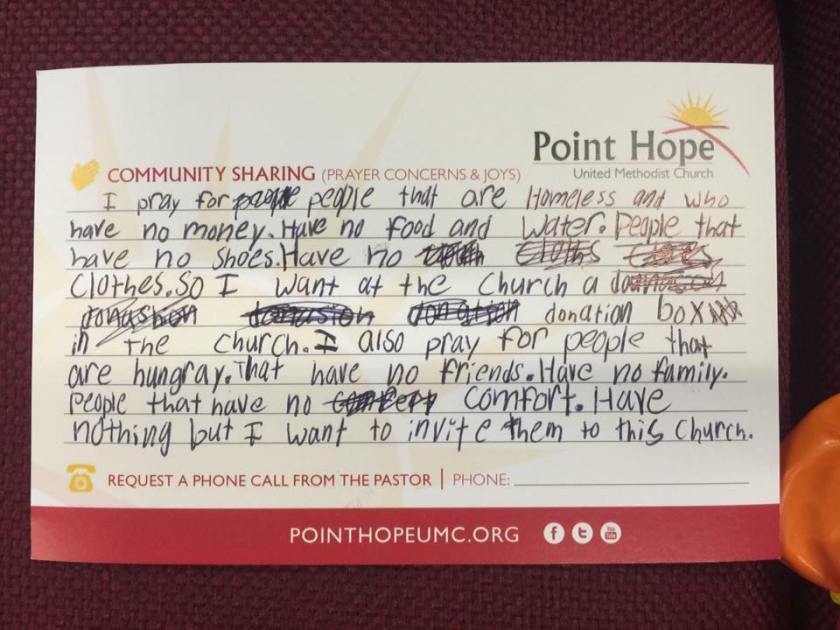 Point Hope
United Methodist Church
COMMUNITY SHARING (PRAYER CONCERNS & JOYS)
I pray for people people that are Homeless and who
have no money. Have no food and Water. People that
have no shoes. Have no Cloths
Clothes. So I want at the Church a
donasion donation donation box
in The Church. I also pray for people that
are hungray. That have no friends. Have no family.
People that have no comfort. Have
nothing but I want to invite them to this Church.
REQUEST A PHONE CALL FROM THE PASTOR | PHONE:
POINTHOPEUMC.ORG f t You Tube